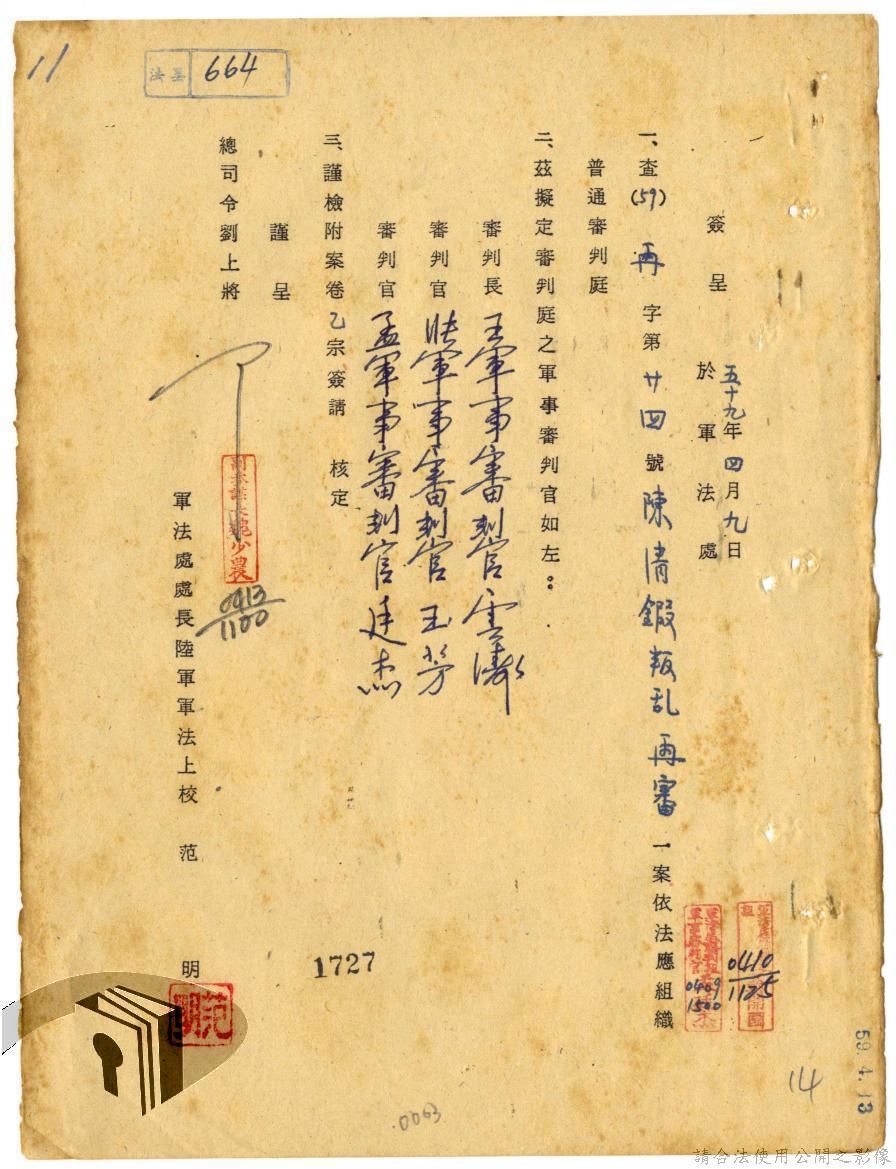 11
法呈 664
簽呈 五十九年四月九日
於軍法處
一、查(59)再字第廿四號陳清鍜叛乱再審一案依法應組織
普通審判庭
二、茲擬定審判庭之軍事審判官如左：
審判長 王軍事審判官雲濤
審判官 張軍事審判官玉芳
審判官 孟軍事審判官廷杰
三、謹檢附案卷乙宗簽請 核定
謹呈
總司令劉上將
0413
1100
軍法處處長陸軍軍法上校 范 明
范明
0410
1125
0409
1500
1727
59.4.13
14
.0063
請合法使用公開之影像